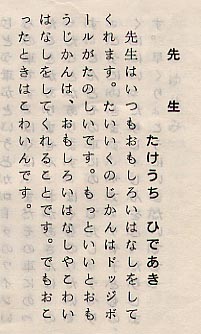 先生
たけうち ひであき
先生はいつもおもしろいはなしをして
くれます。たいいくのじかんはドッジボ
ールがたのしいです。もっといいとおも
うじかんは、おもしろいはなしやこわい
はなしをしてくれることです。でもおこ
ったときはこわいんです。